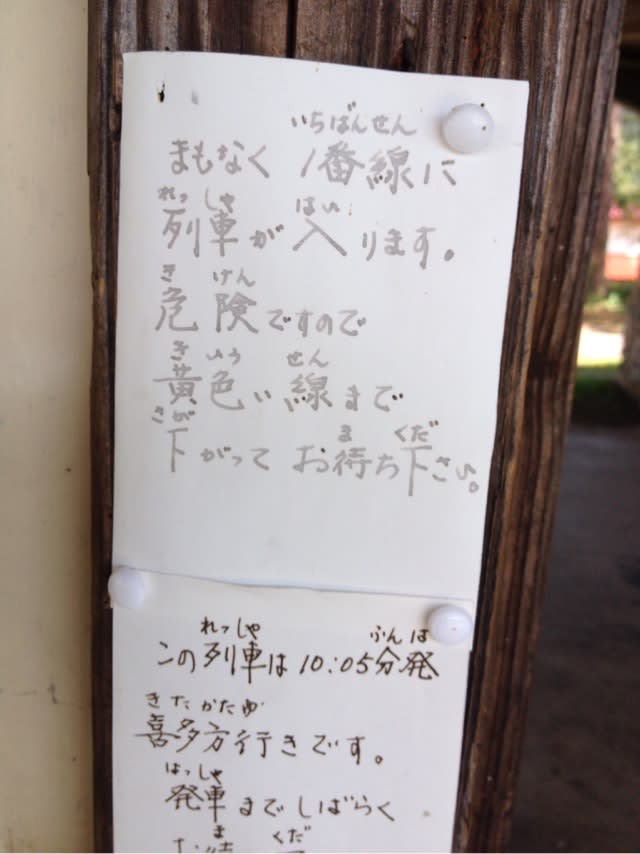 いちばんせん
まもなく 1番線に
れっしゃ はい
列車が 入ります。
き けん
危険ですので
き いろ せん
黄色い線まで
さが ま くだ
下がって お待ち下さい。
れっしゃ ふんは
この列車は10:05分発
きたかたゆ
喜多方行きです。
はっしゃ
発車までしばらく
ま くだ